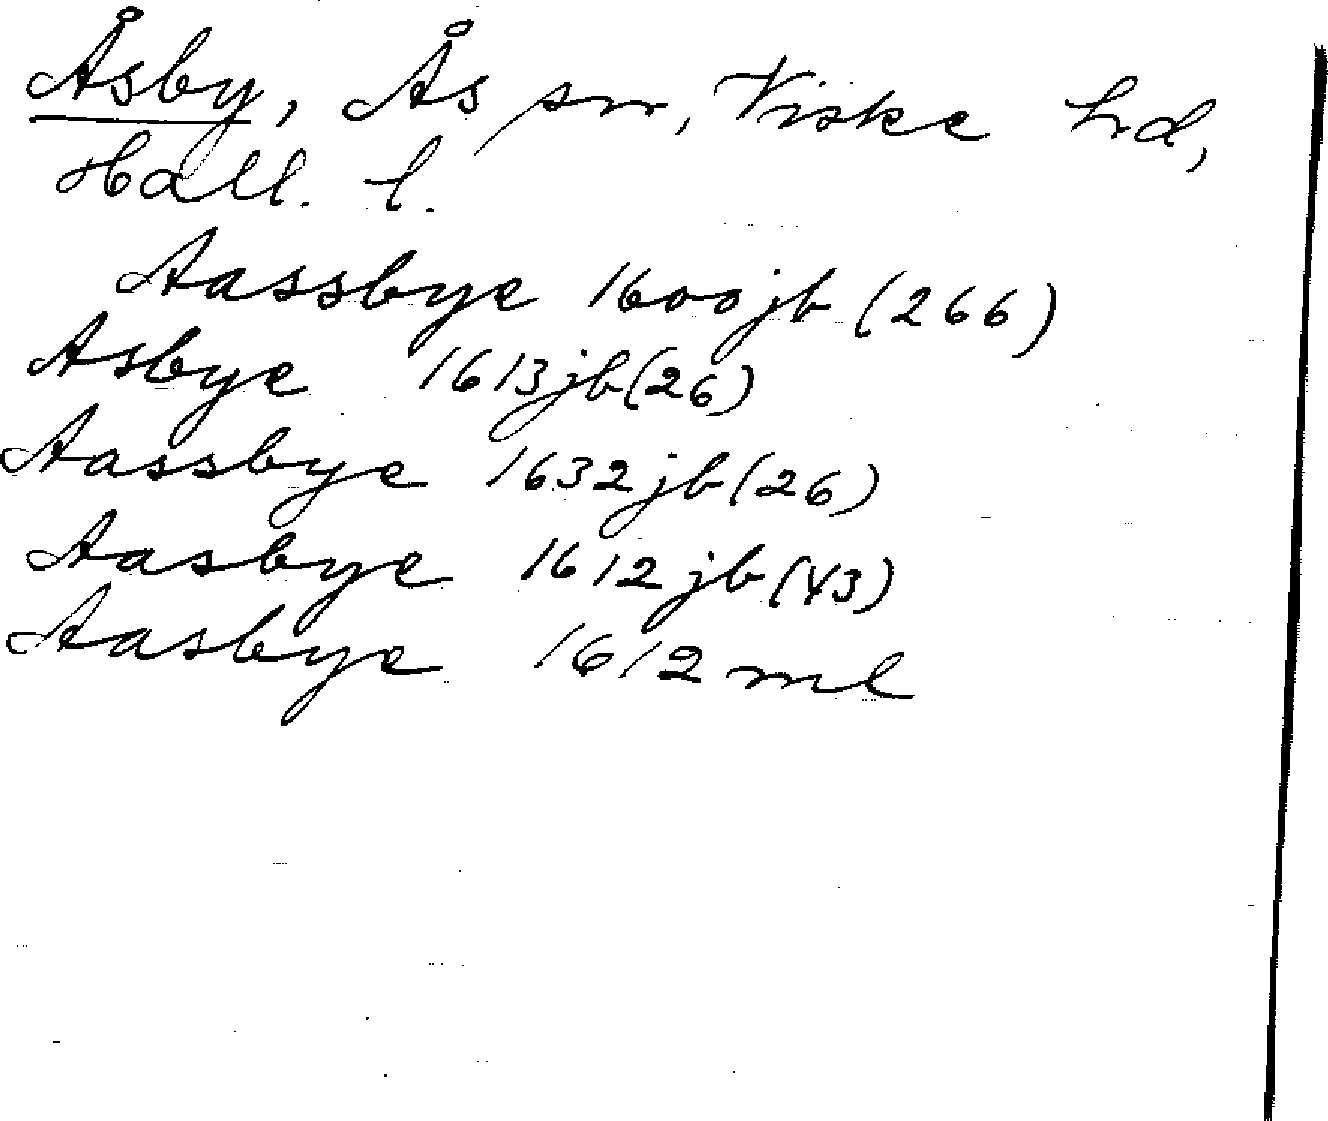 Åsby, Ås sn, Viske hd,
Hall. l.
Aassbye 1600jb (266)
Asbye 1613jb(26)
Aassbye 1632jb(26)
Aasbye 1612jb(43)
Aasbye 1612 ml